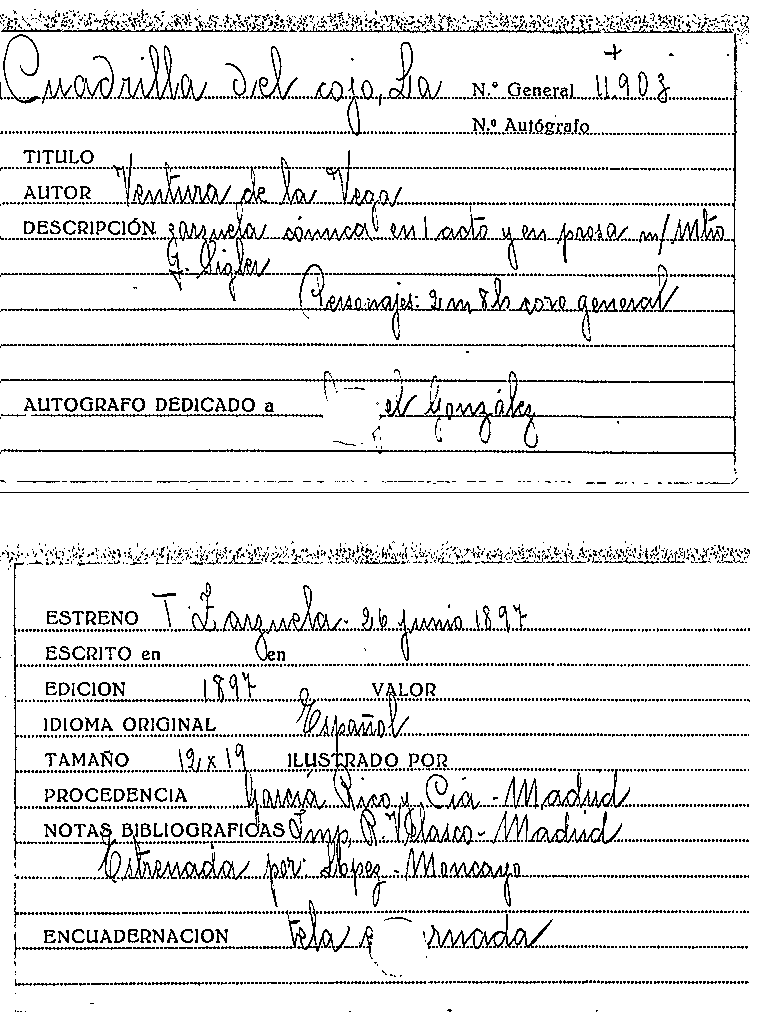 Cuadrilla del cojo, La N.º General 11.903
N.º Autógrafo
TITULO
AUTOR Ventura de la Vega
DESCRIPCIÓN zarzuela cómica en 1 acto y en prosa m/ Mtro
G. Sigler
Personajes: 2 m 8 h coro general
AUTOGRAFO DEDICADO a el González
ESTRENO T. Zarzuela - 26 junio 1897
ESCRITO en en
EDICION 1897 VALOR
IDIOMA ORIGINAL Español
TAMAÑO 12 x 19 ILUSTRADO POR
PROCEDENCIA García Rico y Cía - Madrid
NOTAS BIBLIOGRAFICAS Imp. R. Velasco - Madrid
Estrenada por: López - Moncayo
ENCUADERNACION tela